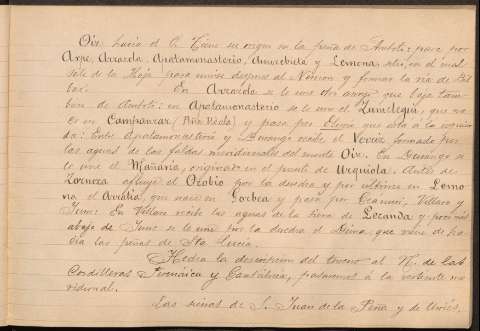 Oiz hacia el O. Tiene su origen en la peña de Amboto: pasa por
Axpe, Arrazola, Apatamonasterio, Amorebieta y Lemona,
para unirse despues al Nervion y formar la ria de Bil
bao. En Arrazola se le une otro arroyo que baja tam
bien de Amboto: en Apatamonasterio se le une el que na
ce en Campanzar y pasa por Elorrio que está á la
da: Entre Apatamonasterio y Durango recibe el formado por
las aguas de las faldas meridionales del monte Oiz. En Durango se
le une el Mañaria, originado en el puerto de Urquiola. Antes de
Zornoza afluye el por la derecha y por ultimo en Lemo
na, el Arratia, que nace en Gorbea y pasa por Ceanuri, Villaro y
Yurre. En Villaro recibe las aguas de la sierra de Lecanda y poco mas
abajo de Yurre se le une por la derecha el Dima, que viene de há
cia las peñas de Sta. Lucia.
Hecha la descripcion del terreno al N. de las
Cordilleras Pirenáica y Cantábrica, pasaremos á la vertiente me
ridional.
Las peñas de S. Juan de la Peña y de